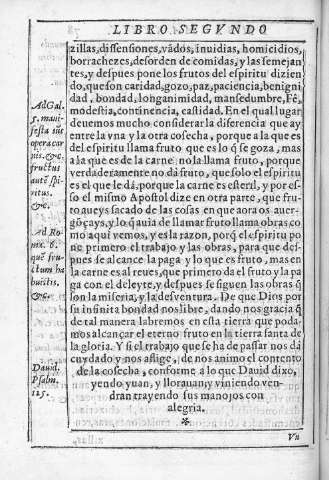 LIBRO SEGVNDO
zillas, dissensiones, vãdos, inuidias, homicidios,
borrachezes, desorden de comidas, y las semejan
tes, y despues pone los frutos del espiritu dizien
do, que son caridad, gozo, paz, paciencia, benigni
dad, bondad, longanimidad, mansedumbre, Fé,
modestia, continencia, castidad. En el qual lugar
deuemos mucho considerar la diferencia que ay
entre la vna y la otra cosecha, porque a la que es
del espiritu llama fruto que es lo q̃ se goza, mas
a la que es de la carne no la llama fruto, porque
verdaderamente no dá fruto, que solo el espiritu
es el que le dá, porque la carne es esteril, y por es-
so el mismo Apostol dize en otra parte, que fru
to aueys sacado de las cosas en que aora os auer-
gõçays, y lo q̃ auia de llamar fruto llama obras, co
mo aqui vemos, y es la razon, porq̃ el espiritu po
ne primero el trabajo y las obras, para que des-
pues se alcance la paga y lo que es fruto, mas en
la carne es al reues, que primero da el fruto y la pa
ga con el deleyte, y despues se siguen las obras q̃
son la miseria, y la desventura. De que Dios por
su infinita bondad nos libre, dando nos gracia q̃
de tal manera labremos en esta tierra que poda-
mos alcançar el eterno fruto en la tierra santa de
la gloria. Y si el trabajo que se ha de passar nos dá
cuydado y nos aflige, de nos animo el contento
de la cosecha, conforme a lo que Dauid dixo,
yendo yuan, y llorauan, y viniendo ven-
dran trayendo sus manojos con
alegria.
Vn
Ad Gal.
5. mani-
festa sũt
opera car
nis. &c.
fructus
autẽ spi-
ritus.
&c.
Ad Ro-
ma. 6.
quẽ fru-
ctum ha
buistis.
&c.
Dauid,
Psalm.
125.